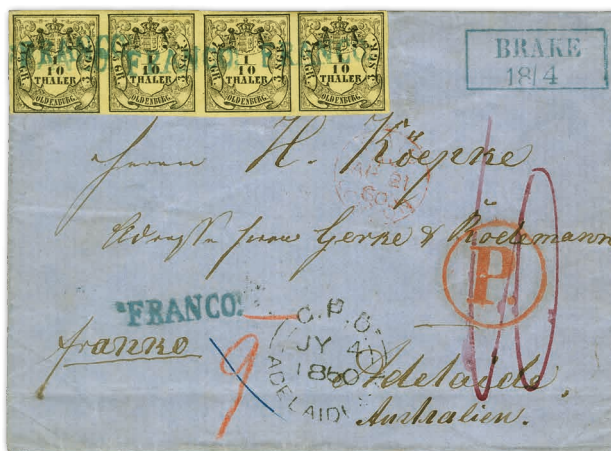 FRANCO FRANCO FRANCO
1/10 THALER OLDENBURG. 1/10 THALER OLDENBURG. 1/10 THALER OLDENBURG. 1/10 THALER OLDENBURG.
BRAKE
18/4
Herrn H. Köpke
AP 21
60
Adresse Herrn Gerke & Rödemann
P.
FRANCO.
franko
9
G.P.O.
JY 4
1860
ADELAIDE
Adelaide
Australien.